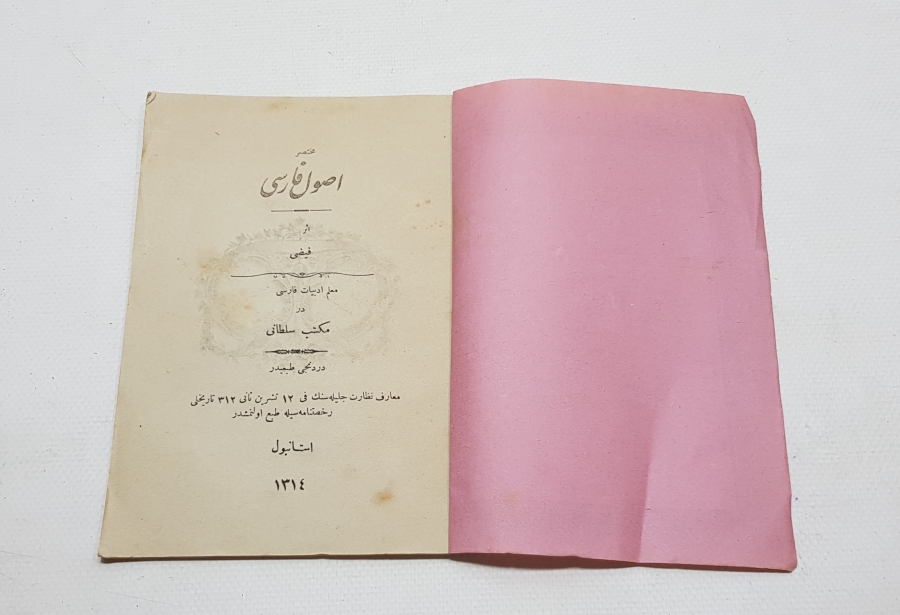 مختصر
اصول فارسی
اثر
فیضی
معلم ادبیات فارسی
در
مکتب سلطانی
دردنجی طبعیدر
معارف نظارت جلیله‌سنك فی ١٢ تشرین ثانی ٣١٢ تاریخلی
رخصتنامه‌سیله طبع اولنمشدر
استانبول
١٣١٤